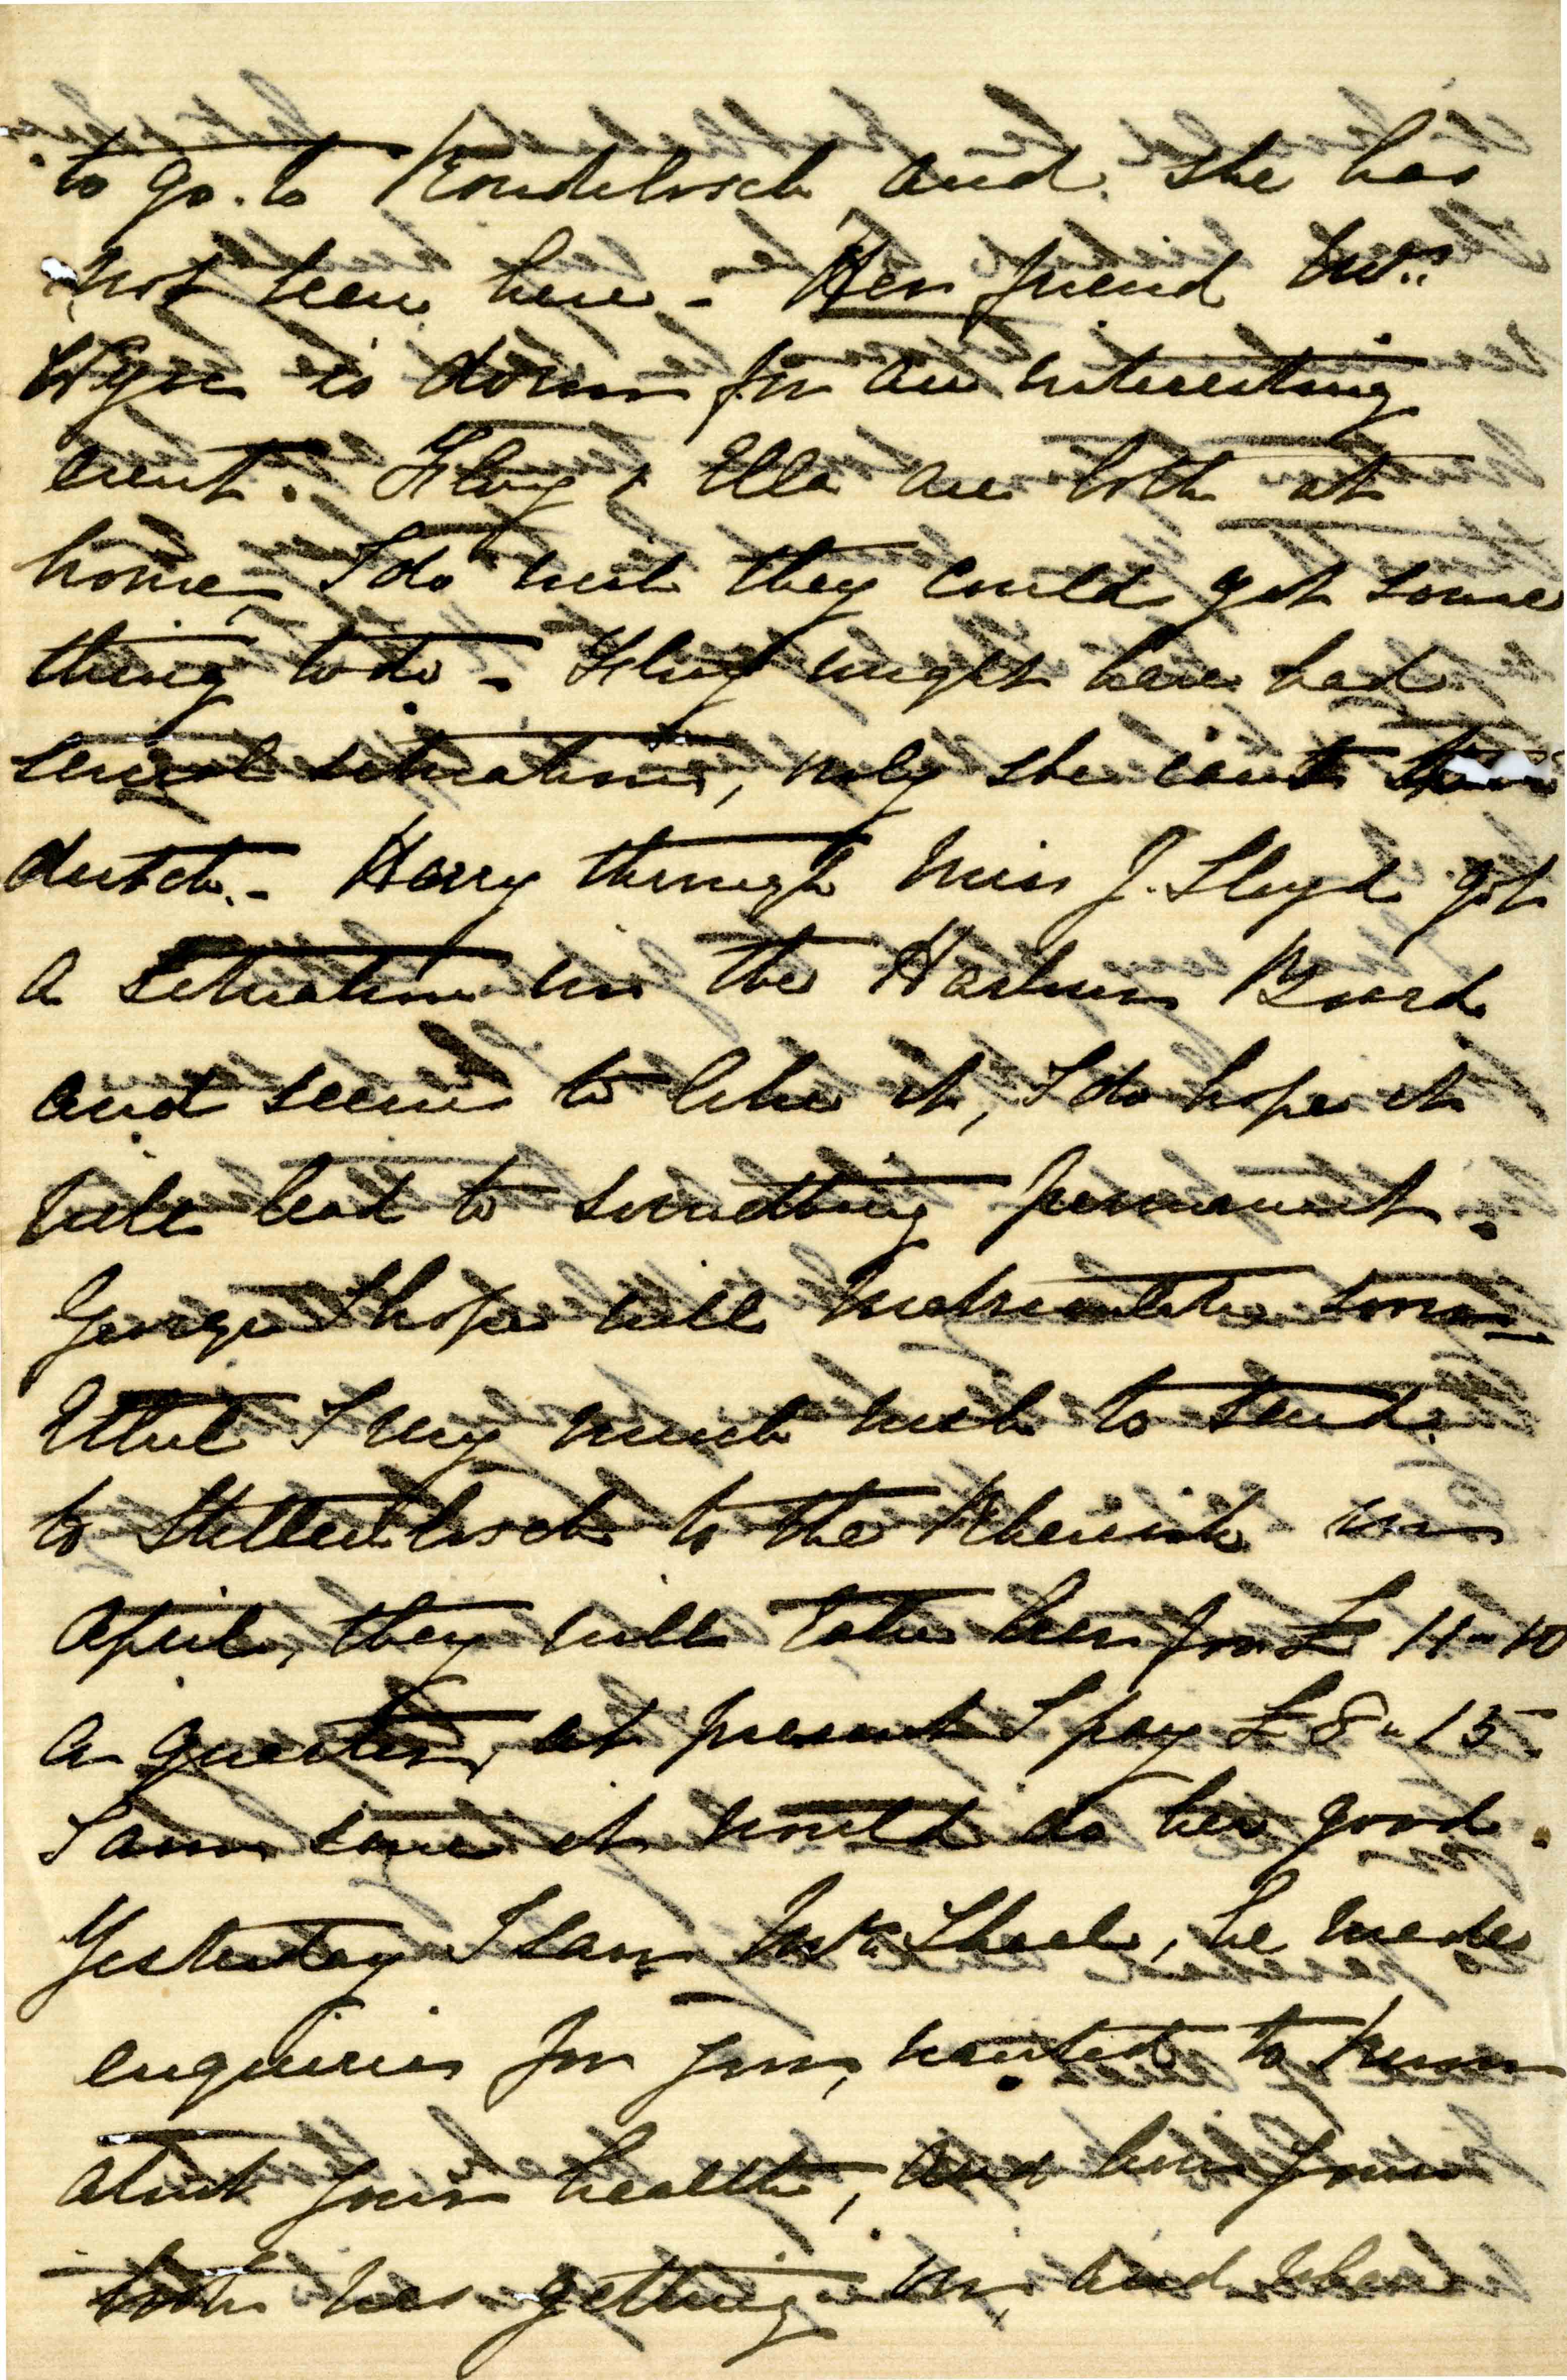 to go to Rondebosch and she has
not been here - Her friend Mrs
is down for an interesting
event. Floy & Ella are both at
home, I do wish they could get some
thing to do - Floy might have had
several situations, only she can't
dutch. - Harry through Miss J. Lloyd got
a situation in the Harbour Board
and seems to like it, I do hope it
will lead to something permanent.
George I hope will matriculate soon
I very much wish to send
to Stellenbosch to the Rhenish in
April, they will take her for £ 11-10
a quarter, at present I pay £ 8"15.
I am sure it would do her good.
Yesterday I saw Mr. he made
enquiries for you, wanted to know
about your health, and how your
work was getting on, and when